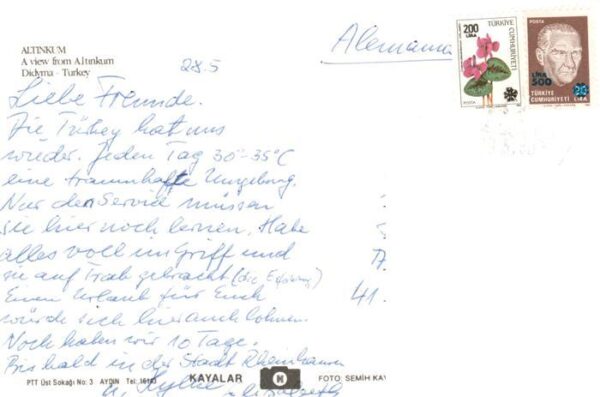 ALTINKUM
A view from Altınkum
Didyma - Turkey
28.5
Alemania
200
LIRA
TÜRKİYE
CUMHURİYETİ
POSTA
POSTA
LİRA
500
TÜRKİYE
CUMHURİYETİ
20
LİRA
Liebe Freunde.
Die Türkey hat uns
wieder. Jeden Tag 30°-35°C
eine traumhafte Umgebung.
Nur den Service müssen
sie hier noch lernen. Habe
alles voll im Griff und
sie auf Trab gebracht (die
Einen Urlaub für Euch
41.
würde sich hier auch lohnen.
Noch haben wir 10 Tage.
Bis bald in der Stadt Rheinhausen
PTT Üst Sokağı No: 3 AYDIN Tel: 16143 KAYALAR FOTO: SEMİH KAY